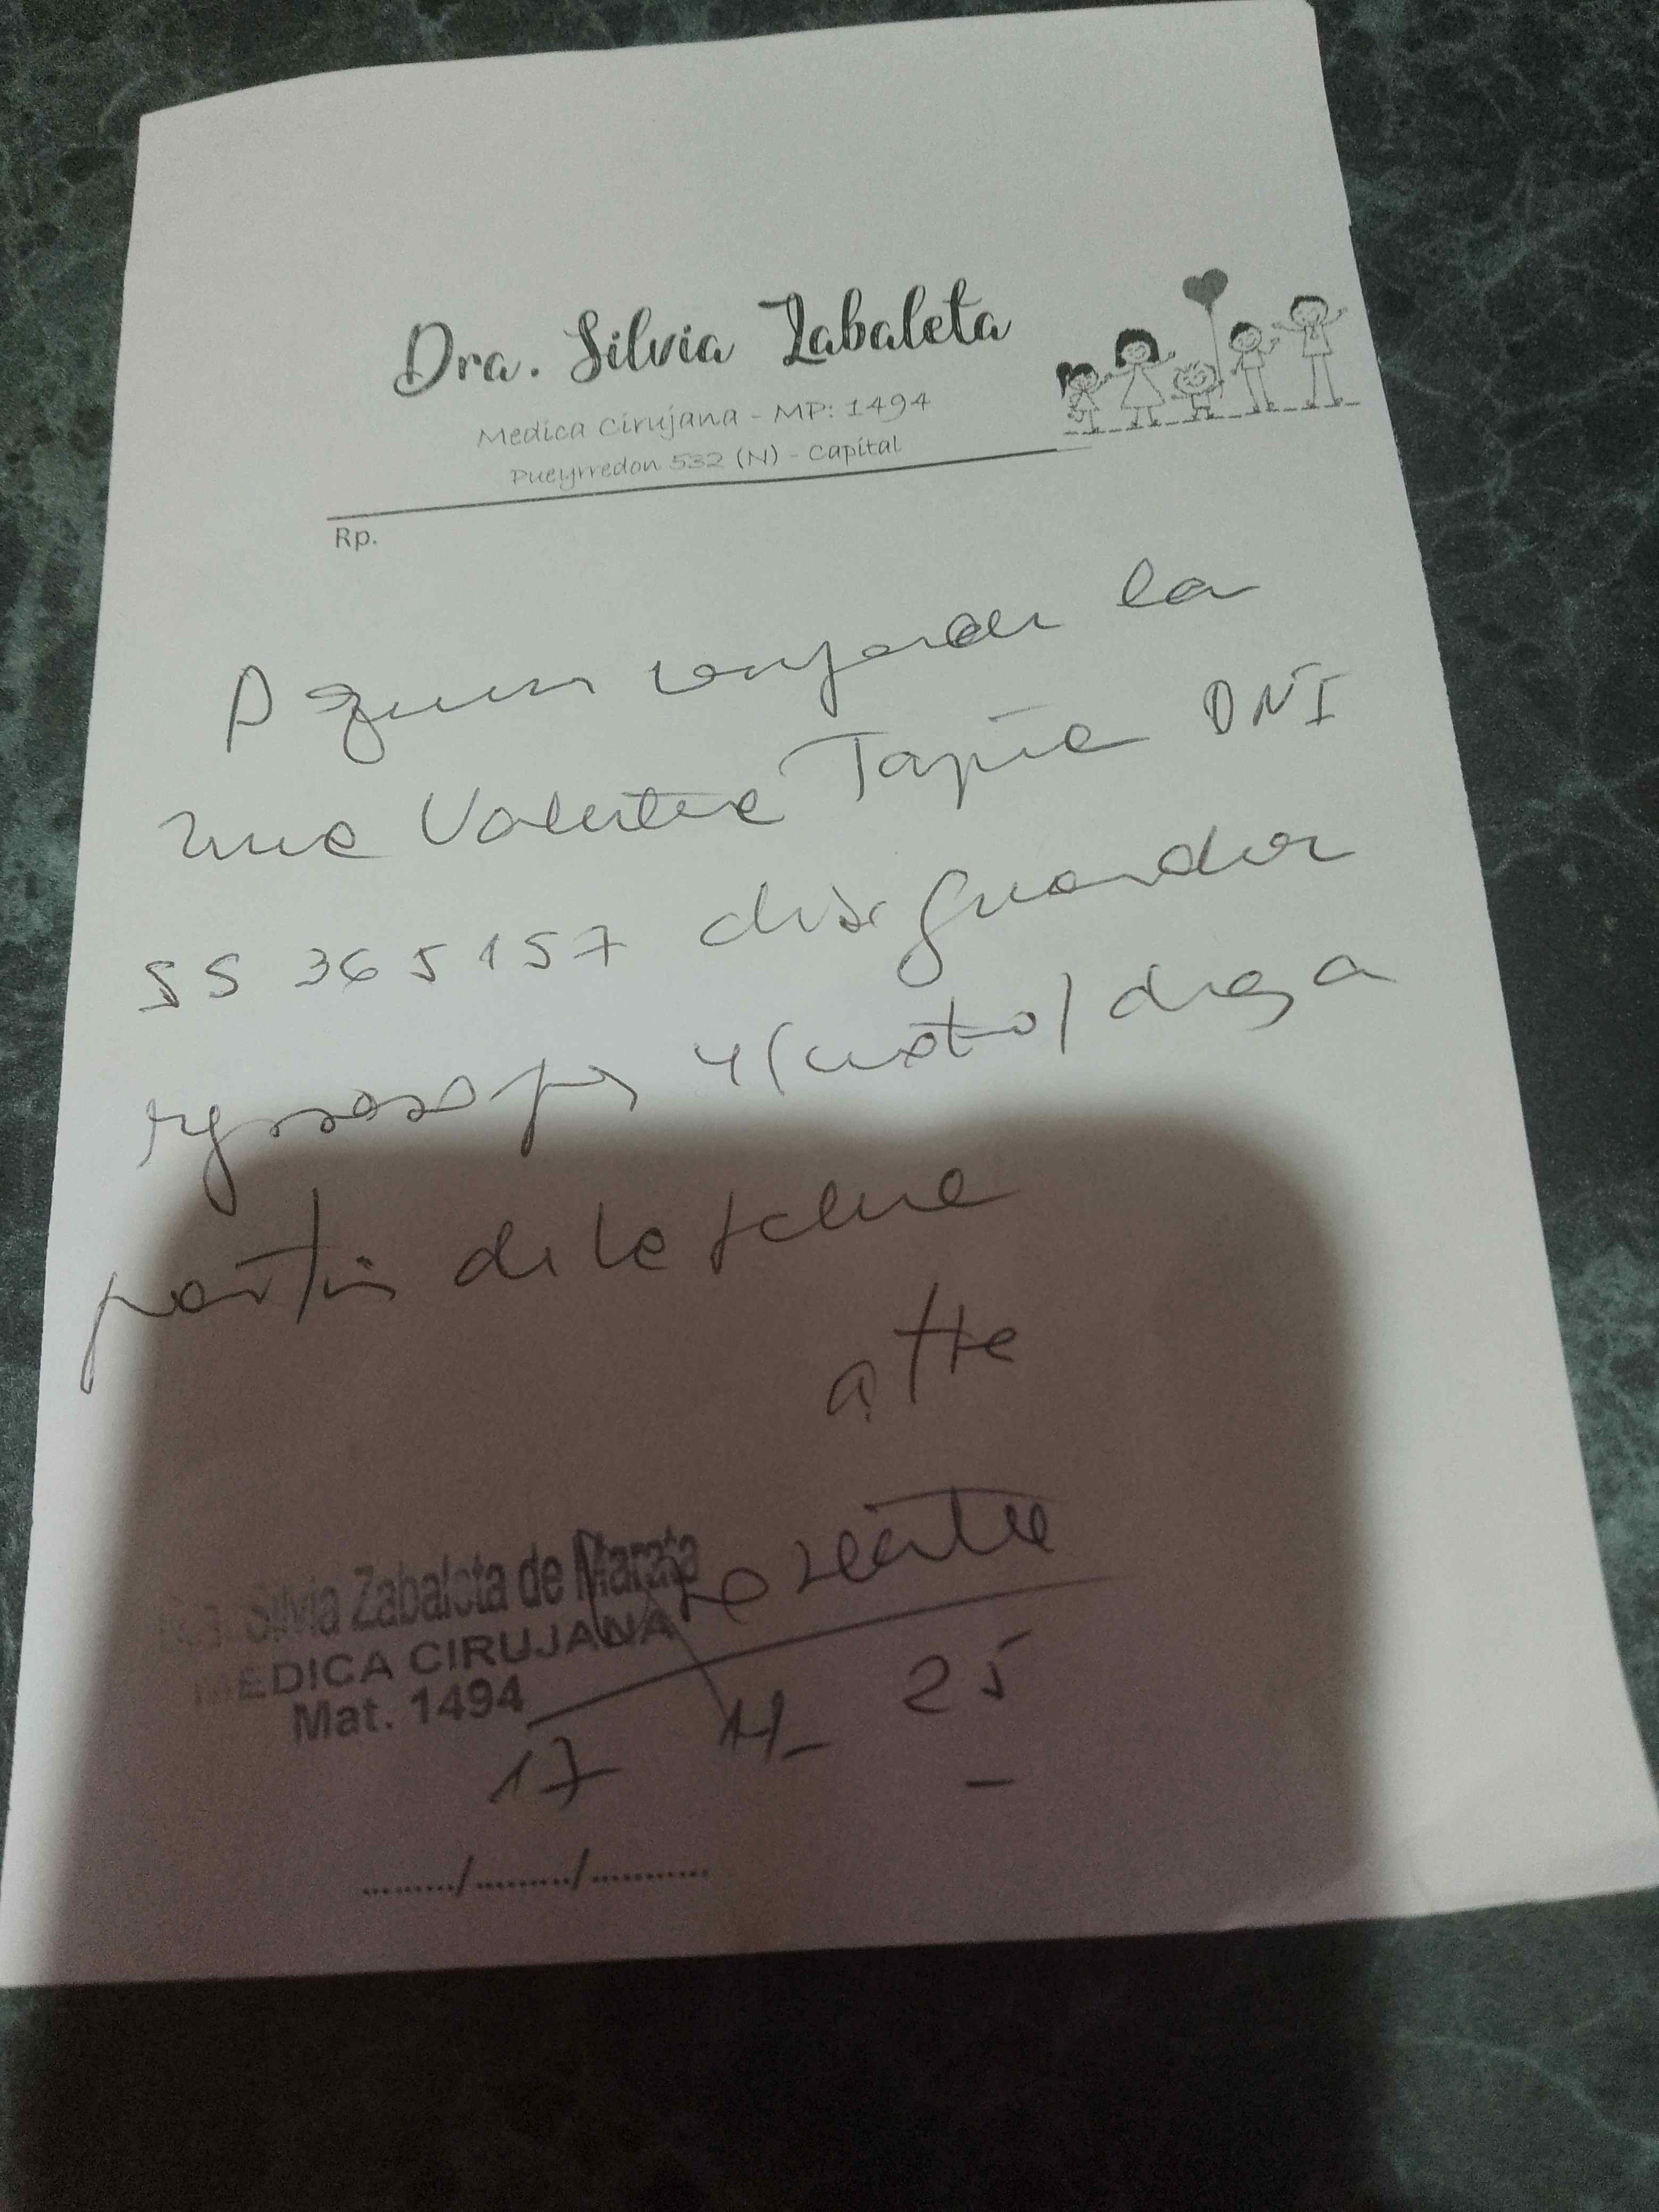 Dra. Silvia Zabaleta
Medica Cirujana - MP: 1494
Pueyrredon 532 (N) - Capital
Rp.
A quien corresponda la
niña Valentina Tapia DNI
55 365 157 debe guardar
reposo por 4 (cuatro) días a
partir de la fecha
atte
Dra. Silvia Zabaleta de Marata
MEDICA CIRUJANA
Mat. 1494
17 11 - 25
......../........./...........